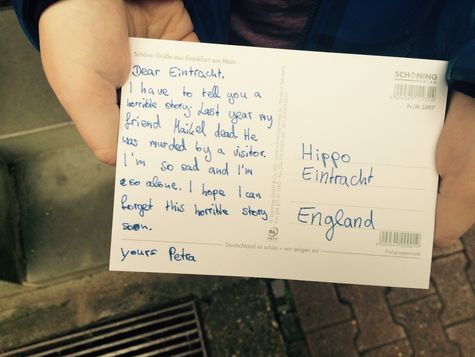 Schöne Grüße aus Frankfurt am Main
Dear Eintracht,
I have to tell you a
horrible story: Last year my
friend Maikel dead He
was murded by a visitor.
I'm so sad and I'm
so alone. I hope I can
forget this horrible story
soon.
yours Petra
SCHÖNING
VERLAG
Fr/M 2497
Hippo
Eintracht
England
Deutschland ist schön – wir zeigen es!